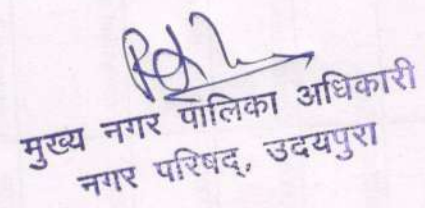 मुख्य नगर पालिका अधिकारी
नगर परिषद्, उदयपुरा